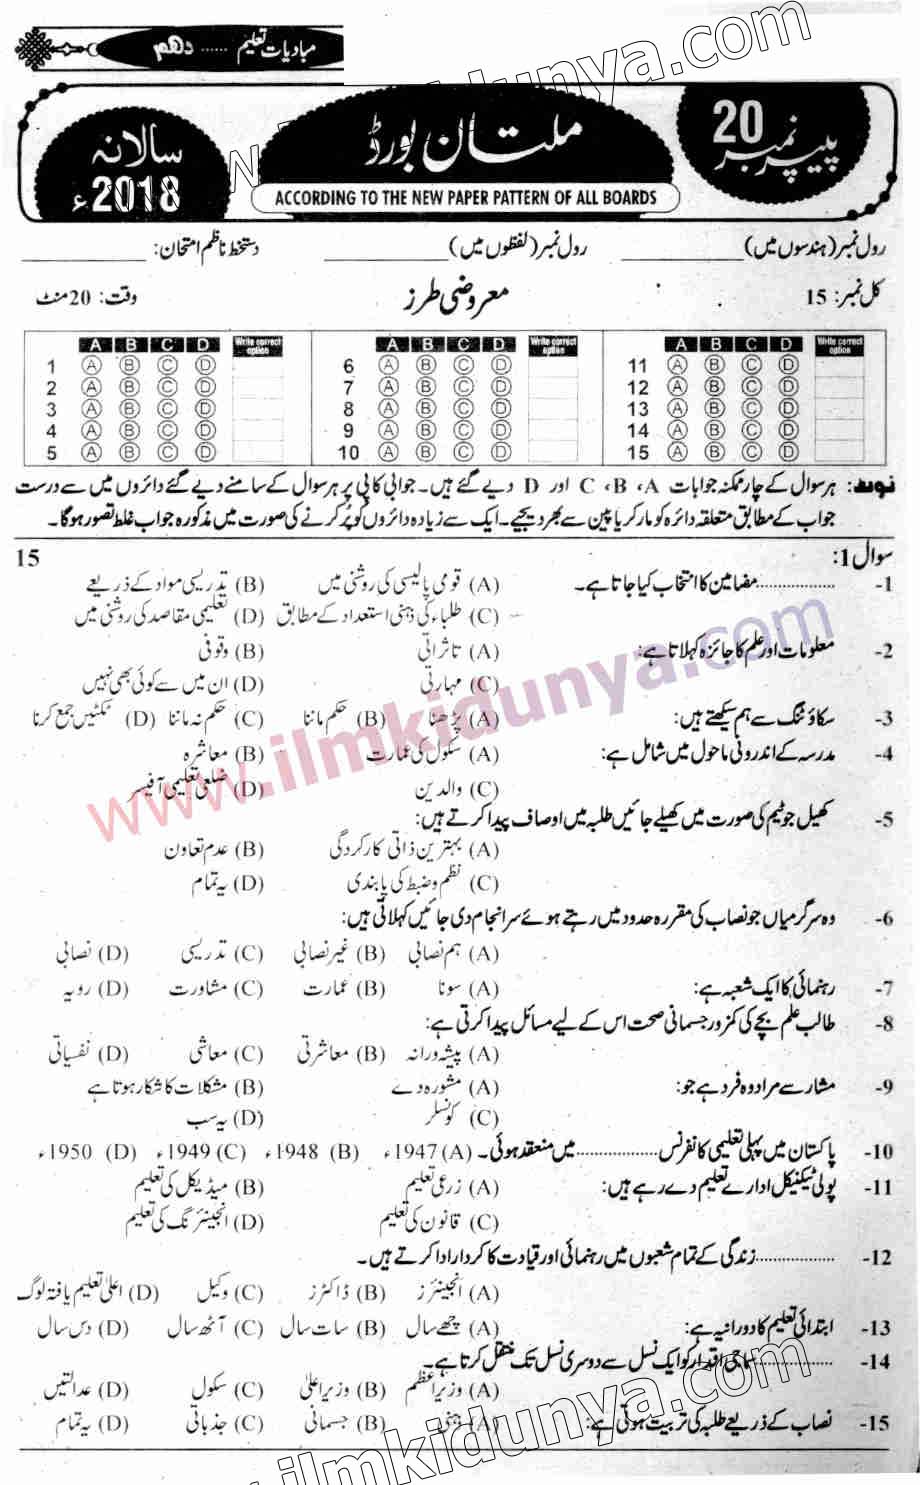 مبادیات تعلیم ...... دهم
پیپر نمبر 20
ملتان بورڈ
سالانہ 2018ء
ACCORDING TO THE NEW PAPER PATTERN OF ALL BOARDS
رول نمبر (ہندسوں میں) ____________ رول نمبر (لفظوں میں) ____________ دستخط ناظم امتحان: ____________
کل نمبر: 15 معروضی طرز وقت: 20 منٹ
A B C D Write correct option A B C D Write correct option A B C D Write correct option
1 A B C D 6 A B C D 11 A B C D
2 A B C D 7 A B C D 12 A B C D
3 A B C D 8 A B C D 13 A B C D
4 A B C D 9 A B C D 14 A B C D
5 A B C D 10 A B C D 15 A B C D
نوٹ: ہر سوال کے چار ممکنہ جوابات A، B، C اور D دیے گئے ہیں۔ جوابی کاپی پر ہر سوال کے سامنے دیے گئے دائروں میں سے درست
جواب کے مطابق متعلقہ دائرہ کو مارکر یا پین سے بھر دیجیے۔ ایک سے زیادہ دائروں کو پُر کرنے کی صورت میں مذکورہ جواب غلط تصور ہوگا۔
سوال 1: 15
1- ................ مضامین کا انتخاب کیا جاتا ہے۔ (A) قومی پالیسی کی روشنی میں (B) تدریسی مواد کے ذریعے
(C) طلباء کی ذہنی استعداد کے مطابق (D) تعلیمی مقاصد کی روشنی میں
2- معلومات اور علم کا جائزہ کہلاتا ہے: (A) تاثراتی (B) وقوفی
(C) مہارتی (D) ان میں سے کوئی بھی نہیں
3- سکاؤٹنگ سے ہم سیکھتے ہیں: (A) پڑھنا (B) حکم ماننا (C) حکم نہ ماننا (D) ٹکٹیں جمع کرنا
4- مدرسہ کے اندرونی ماحول میں شامل ہے: (A) سکول کی عمارت (B) معاشرہ
(C) والدین (D) ضلعی تعلیمی آفیسر
5- کھیل جو ٹیم کی صورت میں کھیلے جائیں طلبہ میں اوصاف پیدا کرتے ہیں:
(A) بہترین ذاتی کارکردگی (B) عدم تعاون
(C) نظم و ضبط کی پابندی (D) یہ تمام
6- وہ سرگرمیاں جو نصاب کی مقررہ حدود میں رہتے ہوئے سرانجام دی جائیں کہلاتی ہیں:
(A) ہم نصابی (B) غیر نصابی (C) تدریسی (D) نصابی
7- رہنمائی کا ایک شعبہ ہے: (A) سونا (B) عمارت (C) مشاورت (D) رویہ
8- طالب علم بچے کی کمزور جسمانی صحت اس کے لیے مسائل پیدا کرتی ہے:
(A) پیشہ ورانہ (B) معاشرتی (C) معاشی (D) نفسیاتی
9- مشار سے مراد وہ فرد ہے جو: (A) مشورہ دے (B) مشکلات کا شکار ہوتا ہے
(C) کونسلر (D) یہ سب
10- پاکستان میں پہلی تعلیمی کانفرنس ................ میں منعقد ہوئی۔ (A) 1947ء (B) 1948ء (C) 1949ء (D) 1950ء
11- پولی ٹیکنیکل ادارے تعلیم دے رہے ہیں: (A) زرعی تعلیم (B) میڈیکل کی تعلیم
(C) قانون کی تعلیم (D) انجینئرنگ کی تعلیم
12- ................ زندگی کے تمام شعبوں میں رہنمائی اور قیادت کا کردار ادا کرتے ہیں۔
(A) انجینئرز (B) ڈاکٹرز (C) وکیل (D) اعلیٰ تعلیم یافتہ لوگ
13- ابتدائی تعلیم کا دورانیہ ہے: (A) چھے سال (B) سات سال (C) آٹھ سال (D) دس سال
14- ................ سماجی اقدار کو ایک نسل سے دوسری نسل تک منتقل کرتا ہے۔
(A) وزیر اعظم (B) وزیر اعلیٰ (C) سکول (D) عدالتیں
15- نصاب کے ذریعے طلبہ کی تربیت ہوتی ہے: (A) ذہنی (B) جسمانی (C) جذباتی (D) یہ تمام
www.ilmkidunya.com